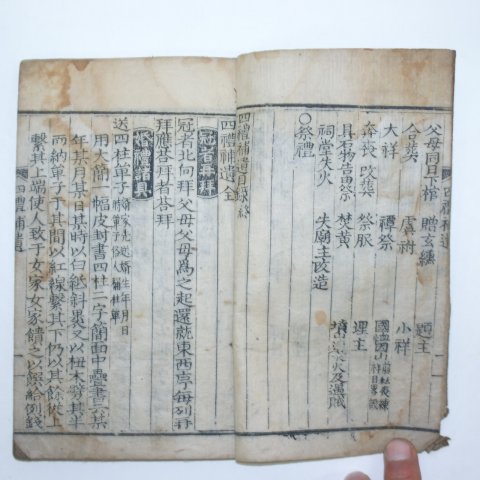 父母同日棺 贈玄纁 題主
合葬 虞祔 小祥
大祥 禫祭
奔喪 改葬 祭服
具石物告祭 焚黃 埋主
祠堂失火 失廟主改造
○祭禮
四禮補遺目錄終
四禮補遺全
冠者再拜
冠者北向拜父母父母爲之起還就東西序每列再
拜應答拜者答拜
婚禮諸具
送四柱單子
用大簡一幅皮封書四柱二字簡面中疊書六某
年某月某日某時以白紙斜裹又以杻木劈其半
而納單子于其間以紅線繫其下仍以其餘從上
繫其上端使人致于女家女家饋之以饌給例錢
四禮補遺